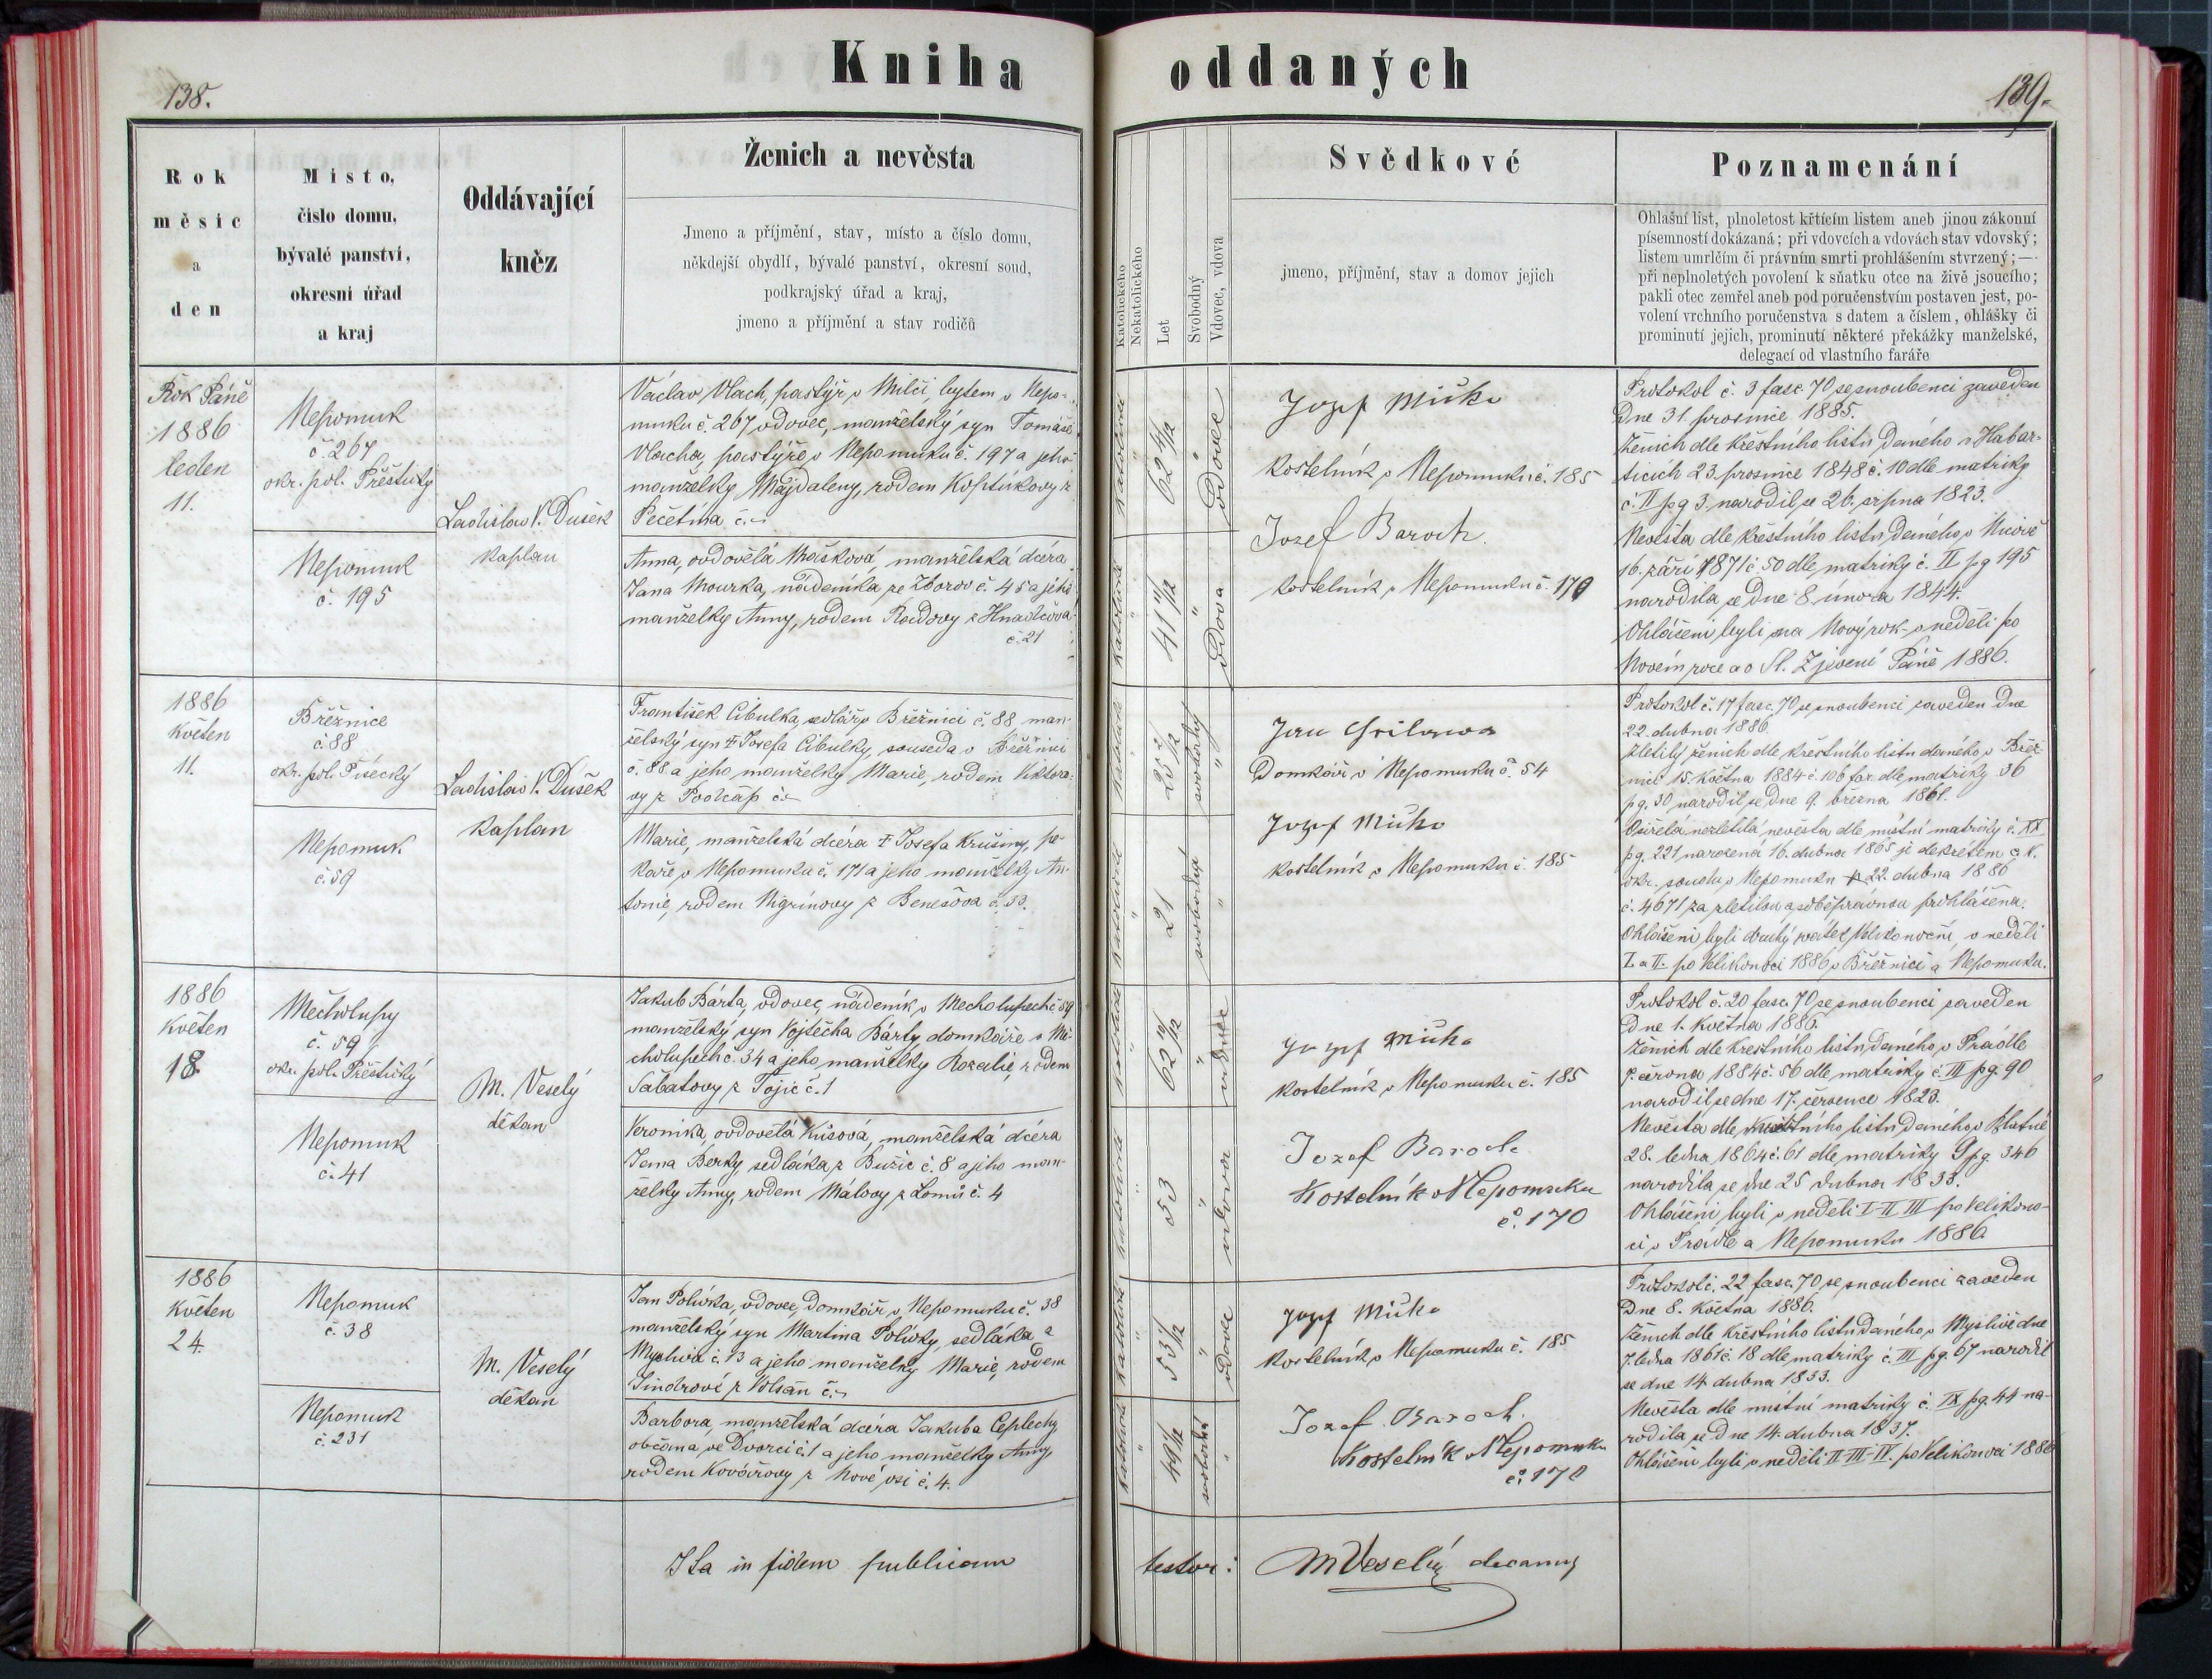 138.
Kniha
oddaných
139.
Rok
měsíc
a
den
Místo,
číslo domu,
bývalé panství,
okresní úřad
a kraj
Oddávající
kněz
Ženich a nevěsta
Jmeno a příjmění, stav, místo a číslo domu,
někdejší obydlí, bývalé panství, okresní soud,
podkrajský úřad a kraj,
jmeno a příjmění a stav rodičů
Katolického
Nekatolického
Let
Svobodný
Vdovec, vdova
Svědkové
jmeno, příjmění, stav a domov jejich
Poznamenání
Ohlašní list, plnoletost křtícím listem aneb jinou zákonní
písemností dokázaná; při vdovcích a vdovách stav vdovský;
listem umrlčím či právním smrti prohlášením stvrzený;—
při neplnoletých povolení k sňatku otce na živě jsoucího;
pakli otec zemřel aneb pod poručenstvím postaven jest, po-
volení vrchního poručenstva s datem a číslem, ohlášky či
prominutí jejich, prominutí některé překážky manželské,
delegací od vlastního faráře
Rok Páně
1886
leden
11.
Nepomuk
č. 267
okr. pol. Přeštický
Nepomuk
č. 195
Ladislav V. Dušek
kaplan
Václav Vlach, pastýř v Milči, bytem v Nepo-
muku č. 267 vdovec, manželský syn Tomáše
Vlacha, pastýře v Nepomuku č. 197 a jeho
manželky Majdaleny, rodem z
Pečetína č. –
Anna, ovdovělá Mašková, manželská dcera
Jana Mourka, nádeníka ze Zborov č. 45 a jeho
manželky Anny, rodem Radovy z Hnačova
č. 21
katolické
62 4/12
vdovec
katolické
41 11/12
vdova
Jozef Míčka
kostelník v Nepomuku č. 185
Jozef Baroch.
kostelník v Nepomuku č. 170
Protokol č. 3 fasc. 70 se snoubenci zaveden
dne 31 prosince 1885.
Ženich dle křestního listu daného v Habar-
ticích 23. prosince 1848 č. 10 dle matriky
č. II pg 3. narodil se 26. srpna 1823.
Nevěsta dle křestního listu daného v Nicově
16. září 1871 č. 50 dle matriky č. II pg 195
narodila se dne 8. února 1844.
Ohlášeni byli na Nový rok v neděli po
Novém roce a o Sl. Zjevení Páně 1886.
1886
květen
11.
Břežnice
č. 88
okr. pol. Písecký
Nepomuk
č. 59
Ladislav V. Dušek
kaplan
František Cibulka, sedlář v Břežnici č. 88 man-
želský syn † Josefa Cibulky, souseda v Břežnici
č. 88 a jeho manželky Marie, rodem Viktoro-
vy z Podčáp č. –
Marie, manželská dcera † Josefa Krušiny, pe-
kaře v Nepomuku č. 171 a jeho manželky An-
tonie, rodem Nigrinovy z Benešova č. 53.
katolické
25 2/12
svobodný
katolické
21
svobodná
Jan
Domkář v Nepomuku č. 54
Jozef Míčka
kostelník v Nepomuku č. 185
Protokol č. 17 fasc. 70 se snoubenci zaveden dne
22. dubna 1886.
Zletilý ženich dle křestního listu daného v Břež-
nici 15. května 1884 č. 106 far. dle matriky 36
pg. 30 narodil se dne 9. března 1861.
Osiřelá nezletilá nevěsta dle místní matriky č. XX
pg. 221 narozená 16. dubna 1865 je dekretem c. k.
okr. soudu v Nepomuku 22. dubna 1886
č. 4671 za zletilou a svéprávnou prohlášena.
Ohlášeni byli druhý svátek Velikonoční, v neděli
I. a II. po Velikonoci 1886 v Břežnici a Nepomuku.
1886
květen
18
Mecholupy
č. 59
okr. pol. Přeštický
Nepomuk
č. 41
M. Veselý
děkan
Jakub Bárta, vdovec, nádeník v Mecholupech č. 59
manželský syn Vojtěcha Bárty domkáře v Me-
cholupech č. 34 a jeho manželky Rozalie, rodem
Šabatovy z Tojic č. 1
Veronika, ovdovělá Kůsová, manželská dcera
Jana Berky, sedláka z Bužic č. 8 a jeho man-
želky Anny, rodem Málovy z Lomů č. 4
katolické
62 10/12
vdovec
katolické
53
vdova
Jozef Míčka
kostelník v Nepomuku č. 185
Jozef Baroch.
Kostelník v Nepomuku
č. 170
Protokol č. 20 fasc. 70 se snoubenci zaveden
dne 1. května 1886.
Ženich dle křestního listu daného v Prádle
9. června 1884 č. 56 dle matriky č. III pg. 90
narodil se dne 17. července 1823.
Nevěsta dle křestního listu daného v Blatné
28. ledna 1864 č. 61 dle matriky G pg. 346
narodila se dne 25 dubna 1833.
Ohlášeni byli v neděli I-II III po Velikono-
ci v Prádle a Nepomuku 1886.
1886
květen
24.
Nepomuk
č. 38
Nepomuk
č. 231
M. Veselý
děkan
Jan Polívka, vdovec, domkář v Nepomuku č. 38
manželský syn Martina Polívky, sedláka z
Myslivi č. 13 a jeho manželky Marie, rodem
Jindrové z Volšan č. –
Barbora, manželská dcera Jakuba Ceplechy
občana ve Dvorci č. 1 a jeho manželky Anny
rodem Kovářovy z Nové vsi č. 4.
katolické
53 1/12
vdovec
katolické
49 1/12
svobodná
Jozef Míčka
kostelník v Nepomuku č. 185
Jozef Baroch.
Kostelník v Nepomuku
č. 170
Protokol č. 22 fasc. 70 se snoubenci zaveden
dne 8. května 1886.
Ženich dle křestního listu daného v Myslivě dne
7. ledna 1861 č. 18 dle matriky č. III pg. 67 narodil
se dne 14. dubna 1833.
Nevěsta dle místní matriky č. IX pg. 44 na-
rodila se dne 14. dubna 1837.
Ohlášeni byli v neděli II-III-IV. po Velikonoci 1886
Ita in fidem publicam
testor:
MVeselý decanus